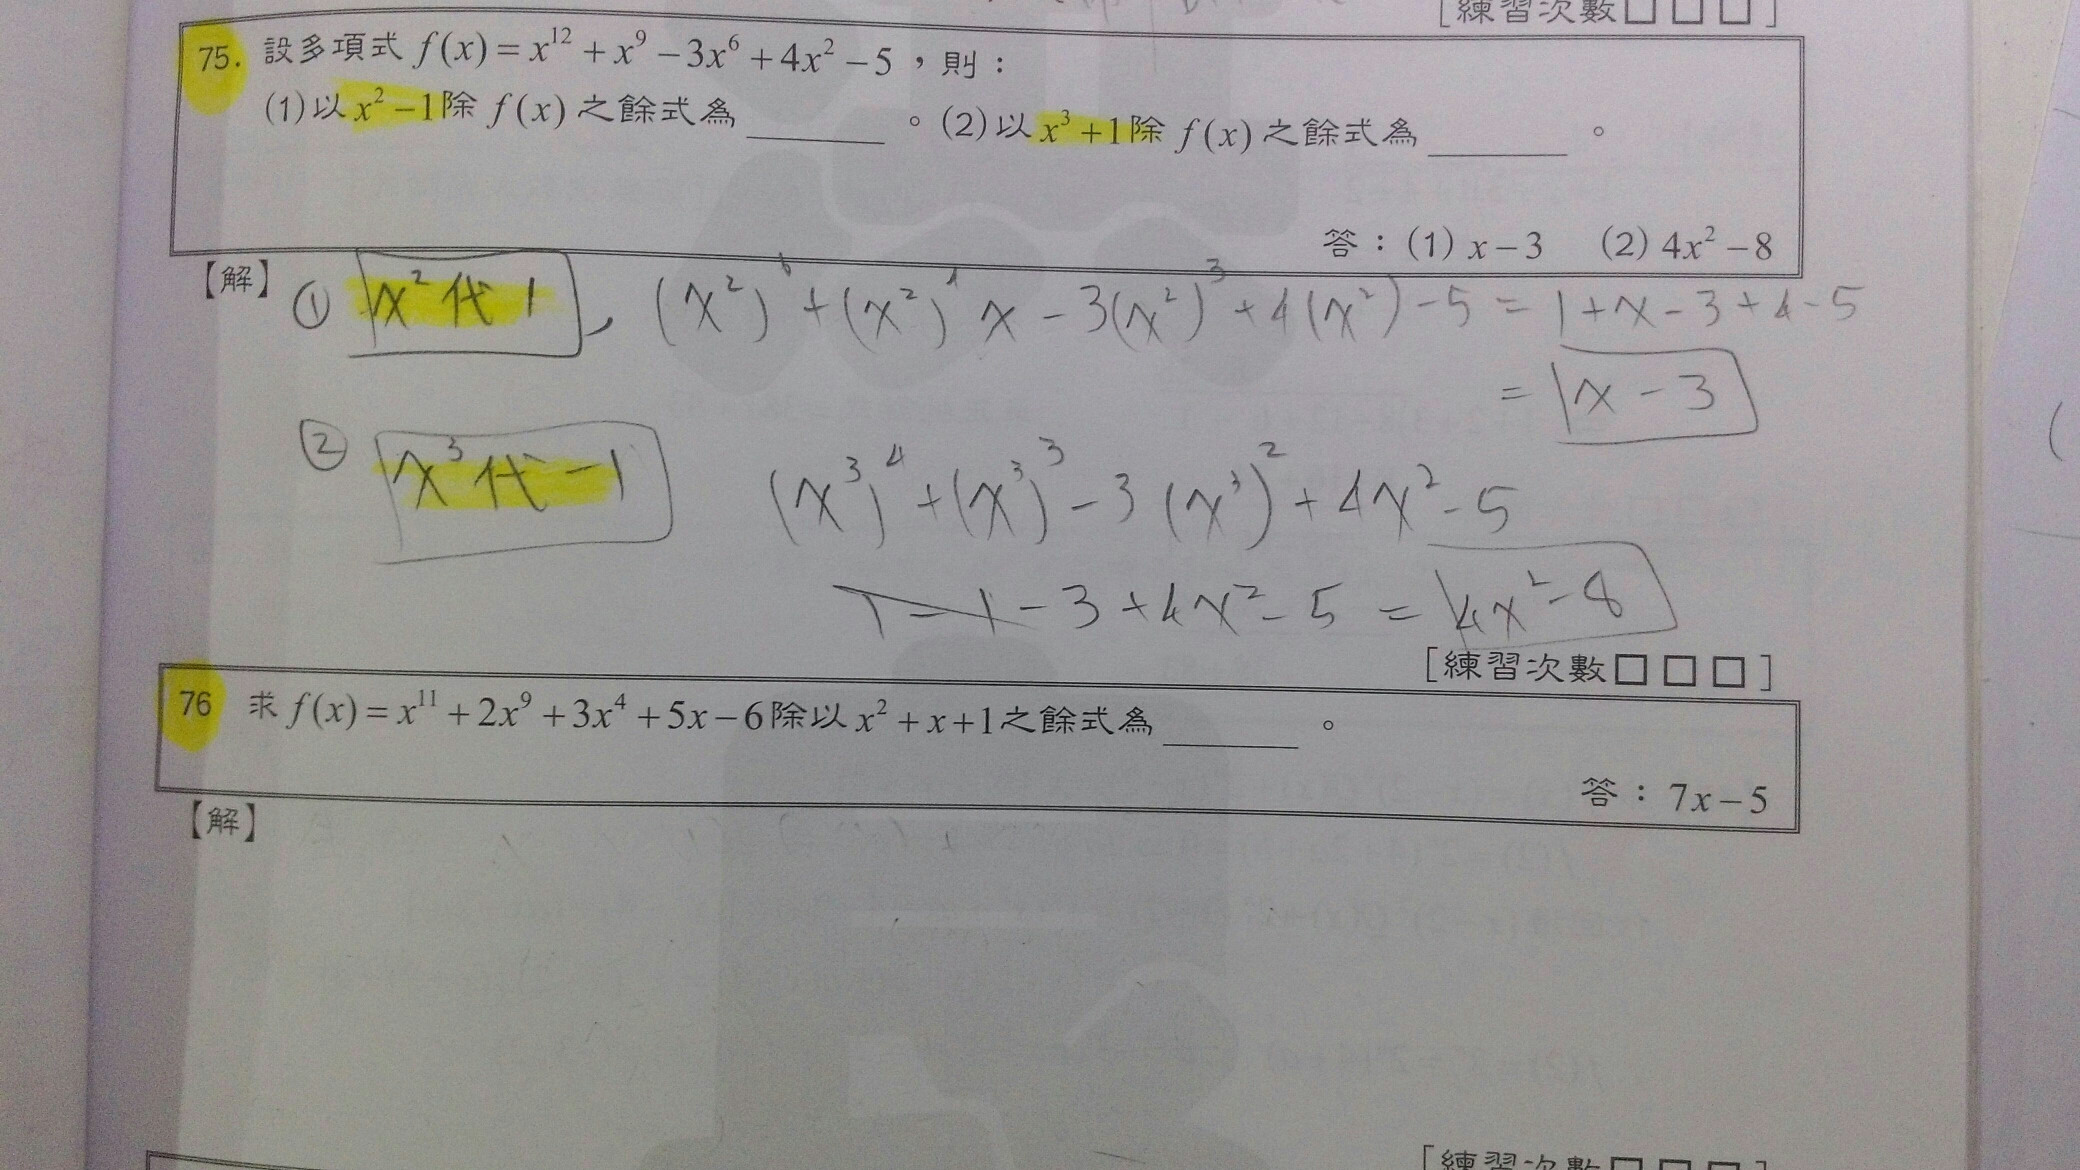 [練習次數□ □ □]
75. 設多項式 f(x) = x¹² + x⁹ − 3x⁶ + 4x² − 5，則：
(1)以 x² − 1除 f(x) 之餘式為______。(2)以 x³ + 1除 f(x) 之餘式為______。
答：(1) x − 3 (2) 4x² − 8
【解】① x²代1, (x²)⁶ + (x²)⁴ x − 3(x²)³ + 4(x²) − 5 = 1 + x − 3 + 4 − 5
= x − 3
② x³代−1 (x³)⁴ + (x³)³ − 3(x³)² + 4x² − 5
1 − 1 − 3 + 4x² − 5 = 4x² − 8
[練習次數□ □ □]
76 求 f(x) = x¹¹ + 2x⁹ + 3x⁴ + 5x − 6除以 x² + x + 1之餘式為______。
答：7x − 5
【解】
[練習次數□ □ □]